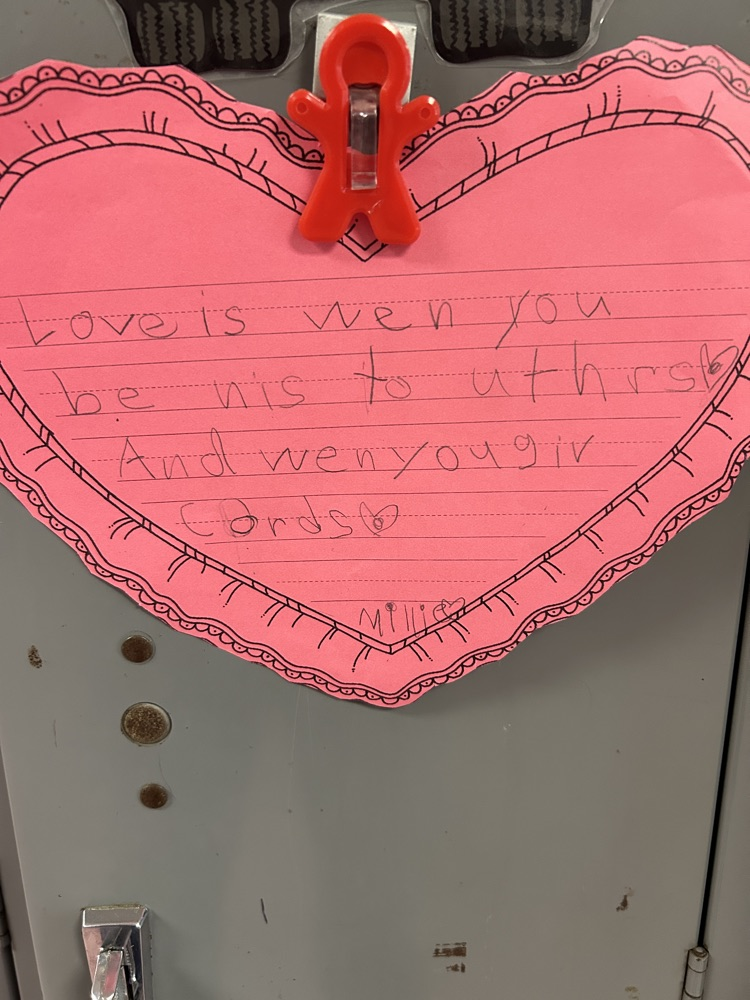 Love is wen you
be nis to uthrs
And wen you giv
Cords
Millie